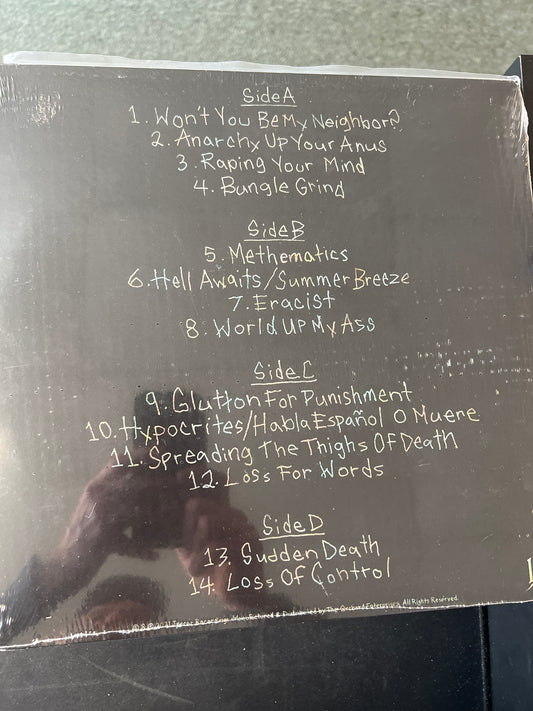 Side A
1. Won't You Be My Neighbor?
2. Anarchy Up Your Anus
3. Raping Your Mind
4. Bungle Grind
Side B
5. Methematics
6. Hell Awaits/Summer Breeze
7. Eracist
8. World Up My Ass
Side C
9. Glutton For Punishment
10. Hypocrites/Habla Español O Muere
11. Spreading The Thighs Of Death
12. Loss For Words
Side D
13. Sudden Death
14. Loss Of Control
Recordings. Manufactured & Distributed by The All Rights Reserved.